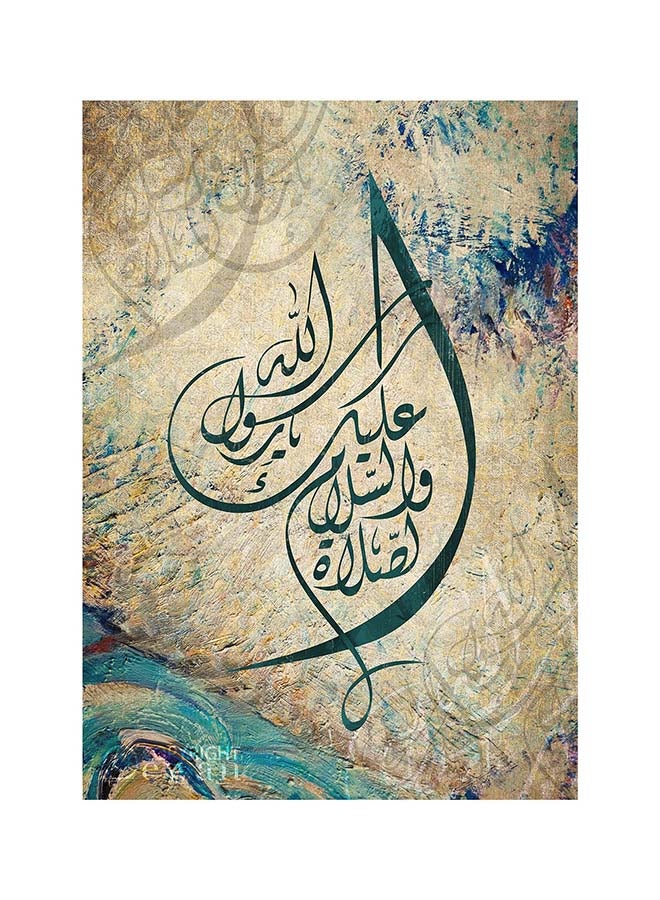 الصلاة
والسّلام
عليك
يا رسول
اللّه
RIGHT